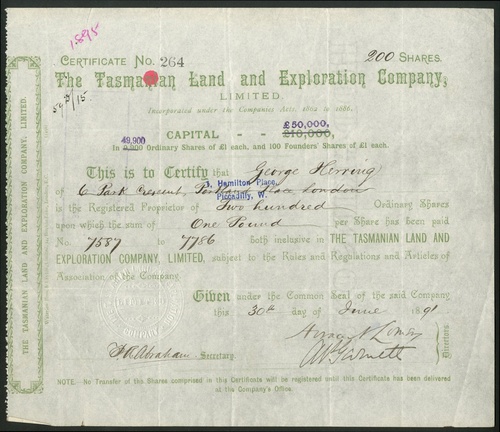 1895
CERTIFICATE No. 264
200 SHARES.
The Tasmanian Land and Exploration Company,
LIMITED.
Incorporated under the Companies Acts, 1862 to 1886.
£50,000,
CAPITAL - - £10,000,
49,900
In 9,900 Ordinary Shares of £1 each, and 100 Founders' Shares of £1 each.
This is to Certify that George Herring
of 6 Park Crescent, Portland Place London
Hamilton Place,
Piccadilly, W.
is the Registered Proprietor of Two hundred Ordinary Shares
upon which the sum of One Pound per Share has been paid
No. 7587 to 7786 both inclusive in THE TASMANIAN LAND AND
EXPLORATION COMPANY, LIMITED, subject to the Rules and Regulations and Articles of
Association of the Company.
Given under the Common Seal of the said Company
this 30th day of June 1891
F.A. Abraham Secretary.
Directors
NOTE.—No Transfer of the Shares comprised in this Certificate will be registered until this Certificate has been delivered
at the Company's Office.
THE TASMANIAN LAND AND EXPLORATION COMPANY, LIMITED.